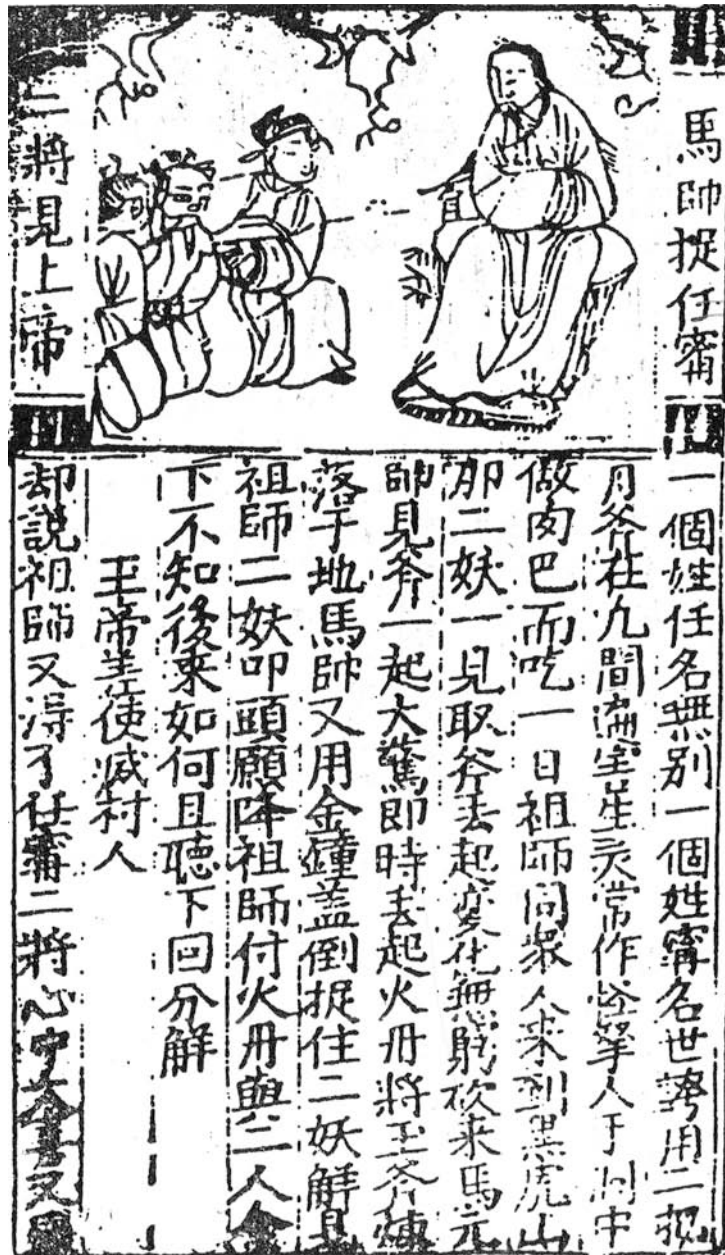 馬帥捉任甯
二將見上帝
一個姓任名無别一個姓甯名世誇用二
月斧在九間 生灵常作怪拏人于洞中
做肉巴而吃一日祖師同衆人来到黑虎山
那二妖一見取斧丢起变化無窮砍来馬元
帥見斧一起大驚即時丢起火丹將玉斧煉
落于地馬帥又用金鐘盖倒捉住二妖解見
祖師二妖叩頭願降祖師付火丹與二人食
下不知後来如何且聽下回分解
玉帝差使滅村人
却說祖師又得了任甯二將心中大喜又